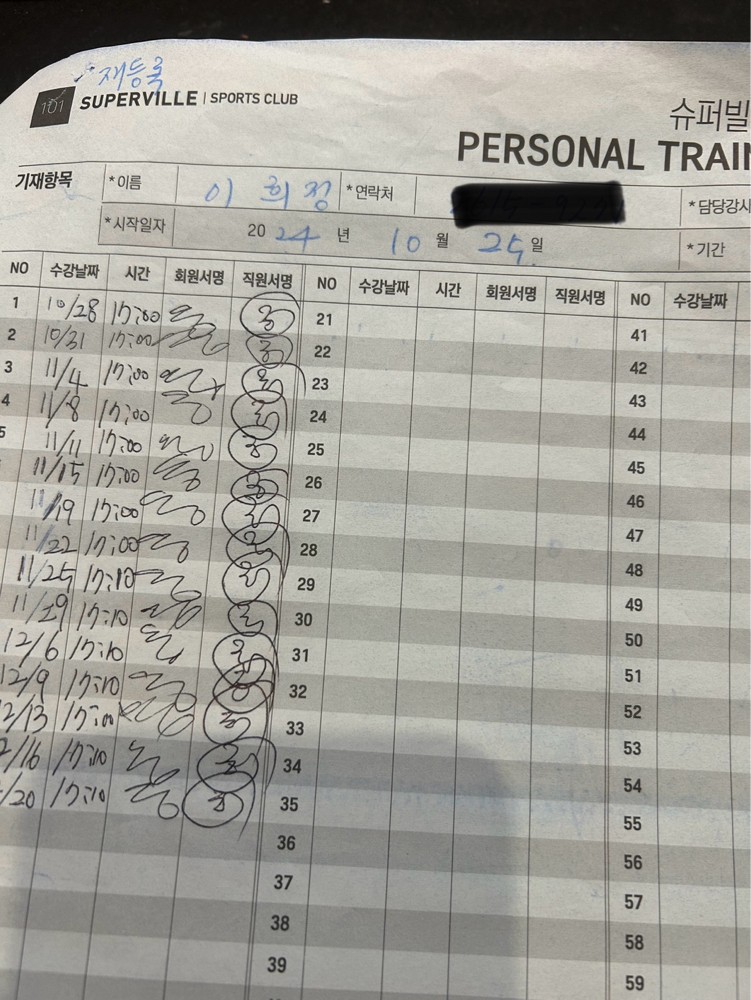 재등록
101 SUPERVILLE | SPORTS CLUB
슈퍼빌
PERSONAL TRAI
기재항목 *이름 이 희 정 *연락처 *담당강사
*시작일자 2024 년 10 월 25 일 *기간
NO 수강날짜 시간 회원서명 직원서명 NO 수강날짜 시간 회원서명 직원서명 NO 수강날짜
1 10/28 17:00 21 41
2 10/31 17:00 22 42
3 11/4 17:00 23 43
4 11/8 17:00 24 44
5 11/11 17:00 25 45
11/15 17:00 26 46
11/19 17:00 27 47
11/22 17:00 28 48
11/25 17:10 29 49
11/29 17:10 30 50
12/6 17:10 31 51
12/9 17:10 32 52
12/13 17:00 33 53
/16 17:10 34 54
/20 17:10 35 55
36 56
37 57
38 58
39 59